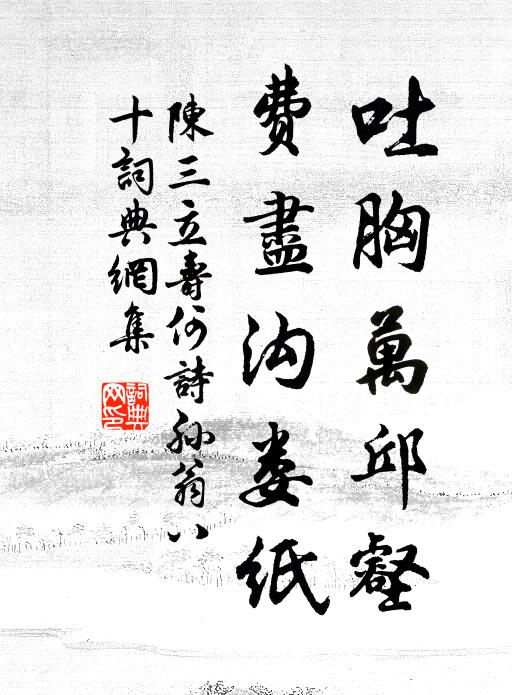 吐胸萬邱壑
費盡沟娄紙
陳三立壽何詩孙翁八
十詞典網集
詞典网印